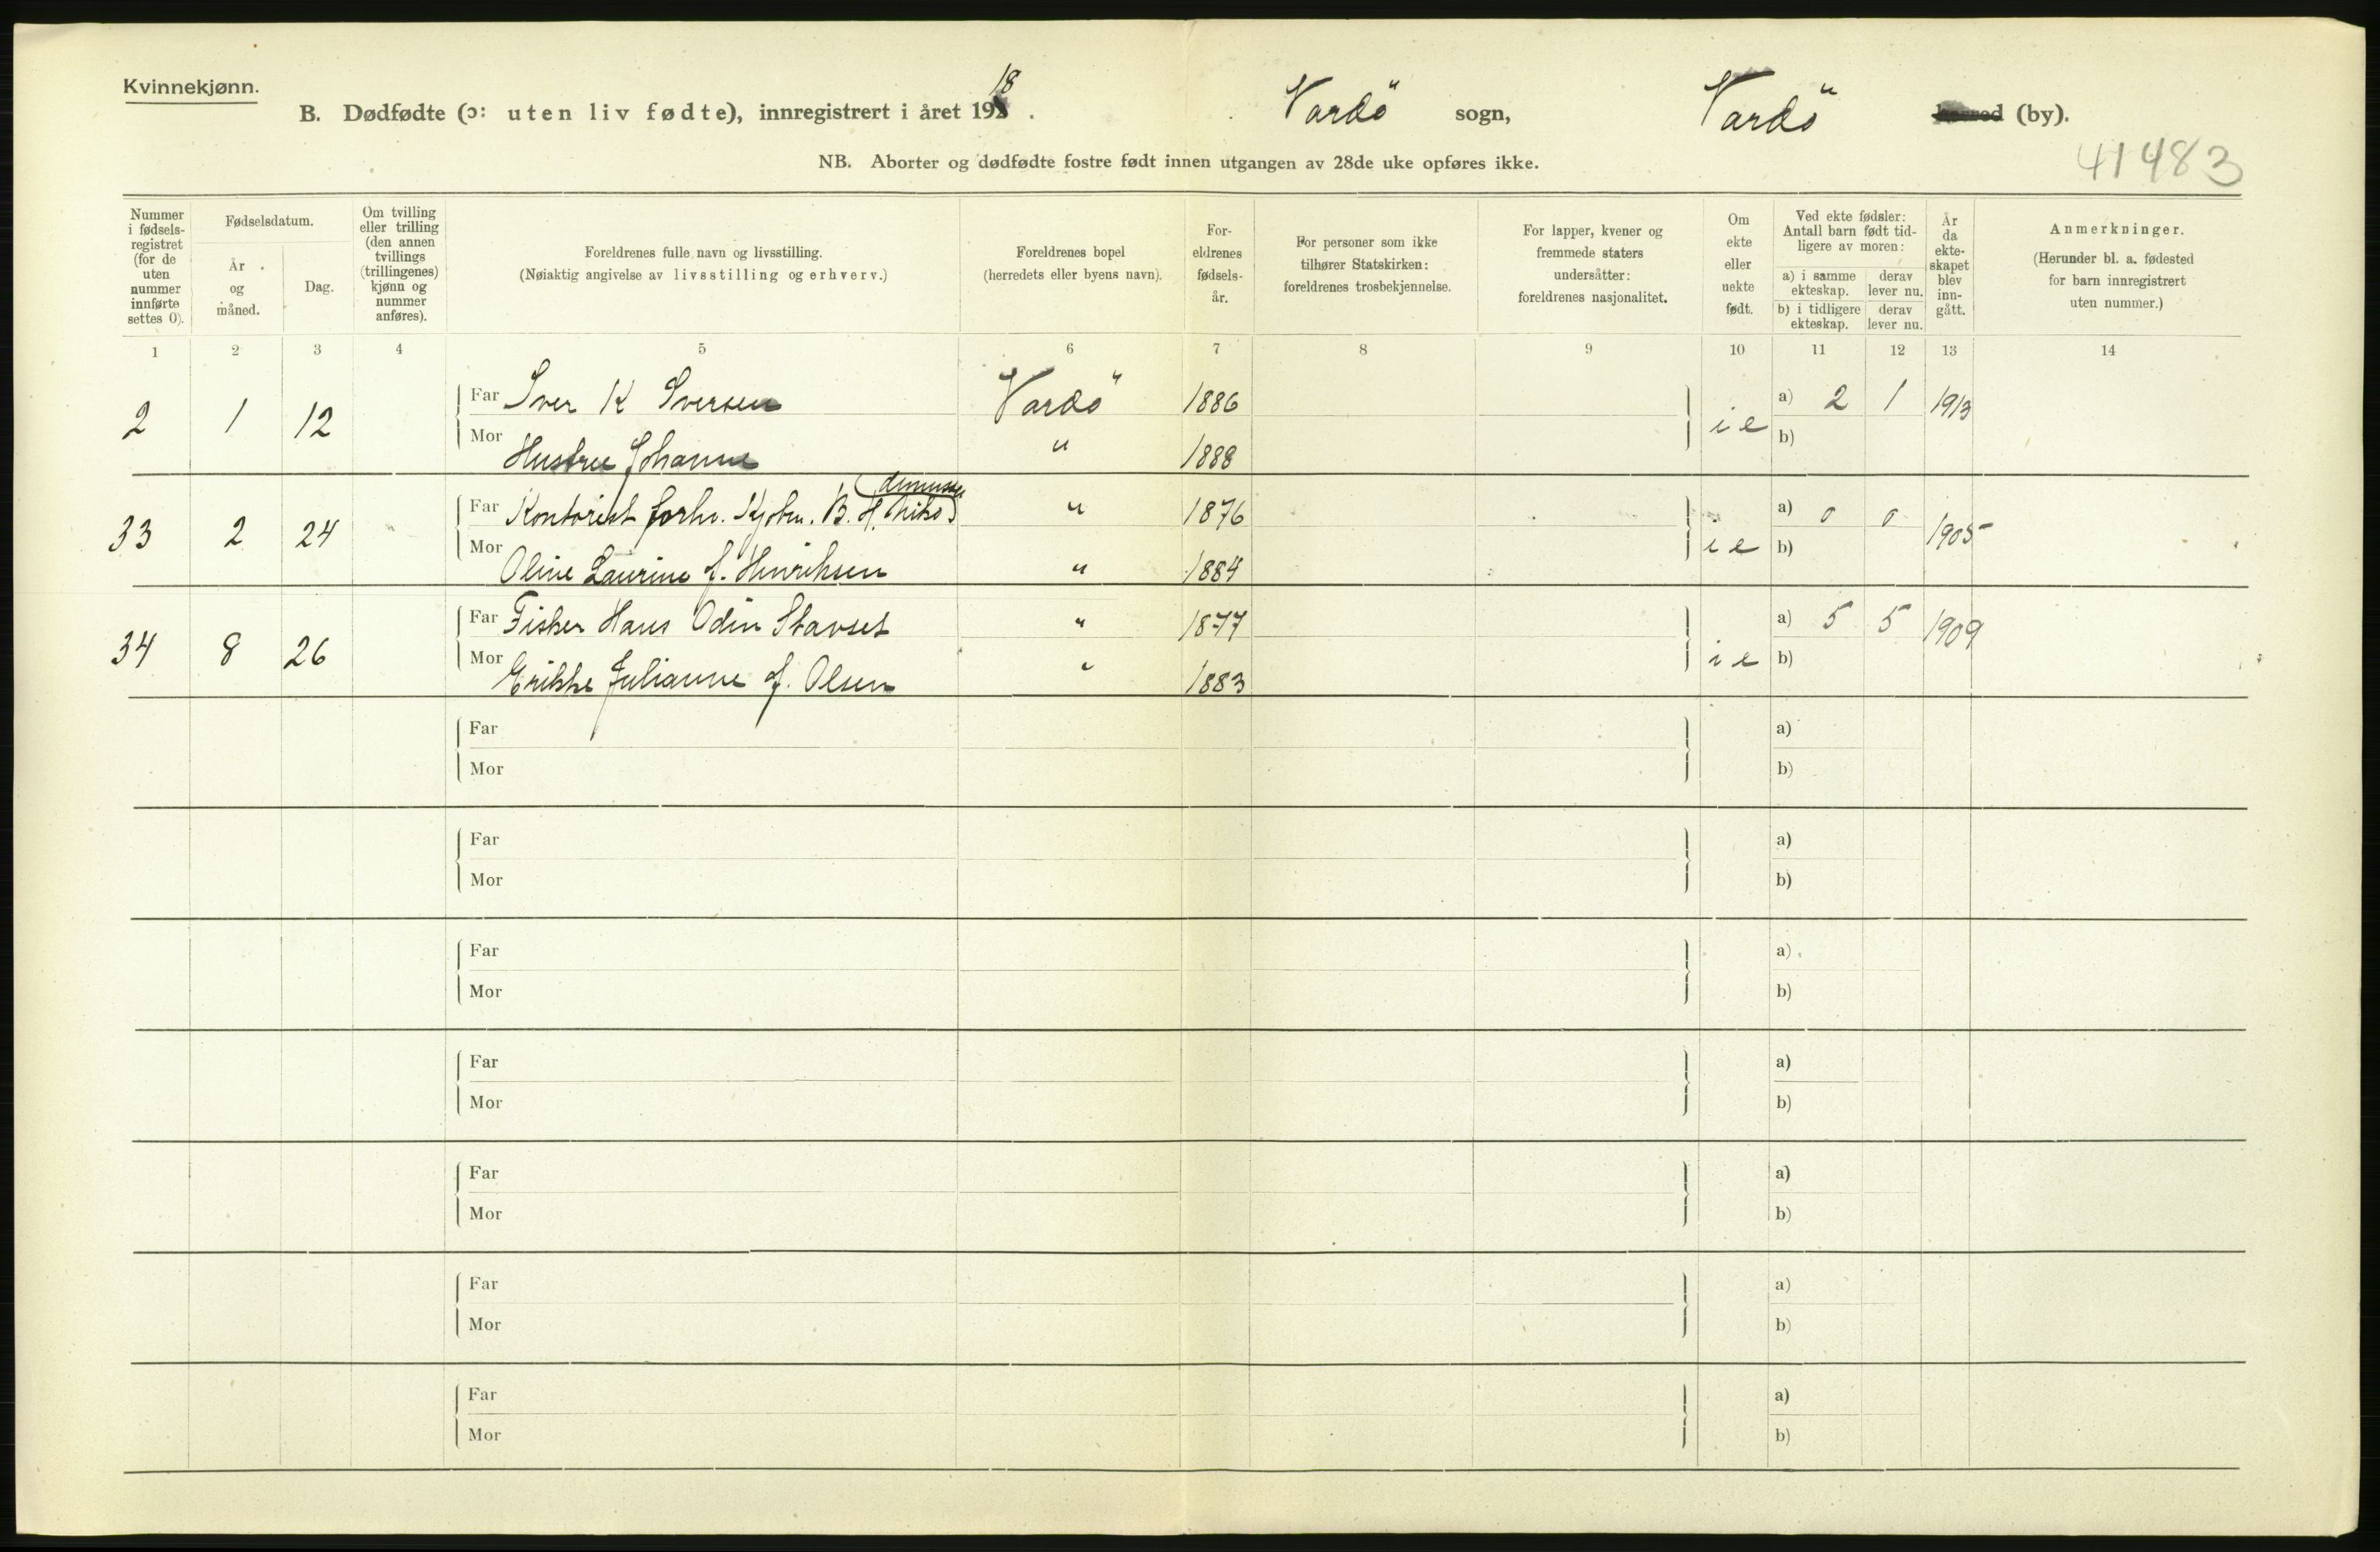 Kvinnekjønn.
B. Dødfødte (ɔ: uten liv fødte), innregistrert i året 1918. Vardö sogn, Vardö herred (by).
NB. Aborter og dødfødte fostre født innen utgangen av 28de uke opføres ikke.
41483
Nummer i fødsels-registret (for de uten nummer innførte settes 0).
Fødselsdatum.
År og måned.
Dag.
Om tvilling eller trilling (den annen tvillings (trillingenes) kjønn og nummer anføres).
Foreldrenes fulle navn og livsstilling.
(Nøiaktig angivelse av livsstilling og erhverv.)
Foreldrenes bopel
(herredets eller byens navn).
For-eldrenes fødsels-år.
For personer som ikke tilhører Statskirken: foreldrenes trosbekjennelse.
For lapper, kvener og fremmede staters undersåtter: foreldrenes nasjonalitet.
Om ekte eller uekte født.
Ved ekte fødsler: Antall barn født tid-ligere av moren:
a) i samme ekteskap.
derav lever nu.
b) i tidligere ekteskap.
derav lever nu.
År da ekte-skapet blev inn-gått.
Anmerkninger.
(Herunder bl. a. fødested for barn innregistrert uten nummer.)
1 2 3 4 5 6 7 8 9 10 11 12 13 14
2 1 12 Far Iver K Iversen Vardö 1886 ie a) 2 1 1913
Mor Hustru Johanne " 1888 b)
33 2 24 Far Kontorist forhv. B. H. " 1876 ie a) 0 0 1905
Mor Oline Laurine f. Henriksen " 1884 b)
34 8 26 Far Fisker Hans Odin Stavset " 1877 ie a) 5 5 1909
Mor Erikke Julianne f. Olsen " 1883 b)
Far a)
Mor b)
Far a)
Mor b)
Far a)
Mor b)
Far a)
Mor b)
Far a)
Mor b)
Far a)
Mor b)
Far a)
Mor b)